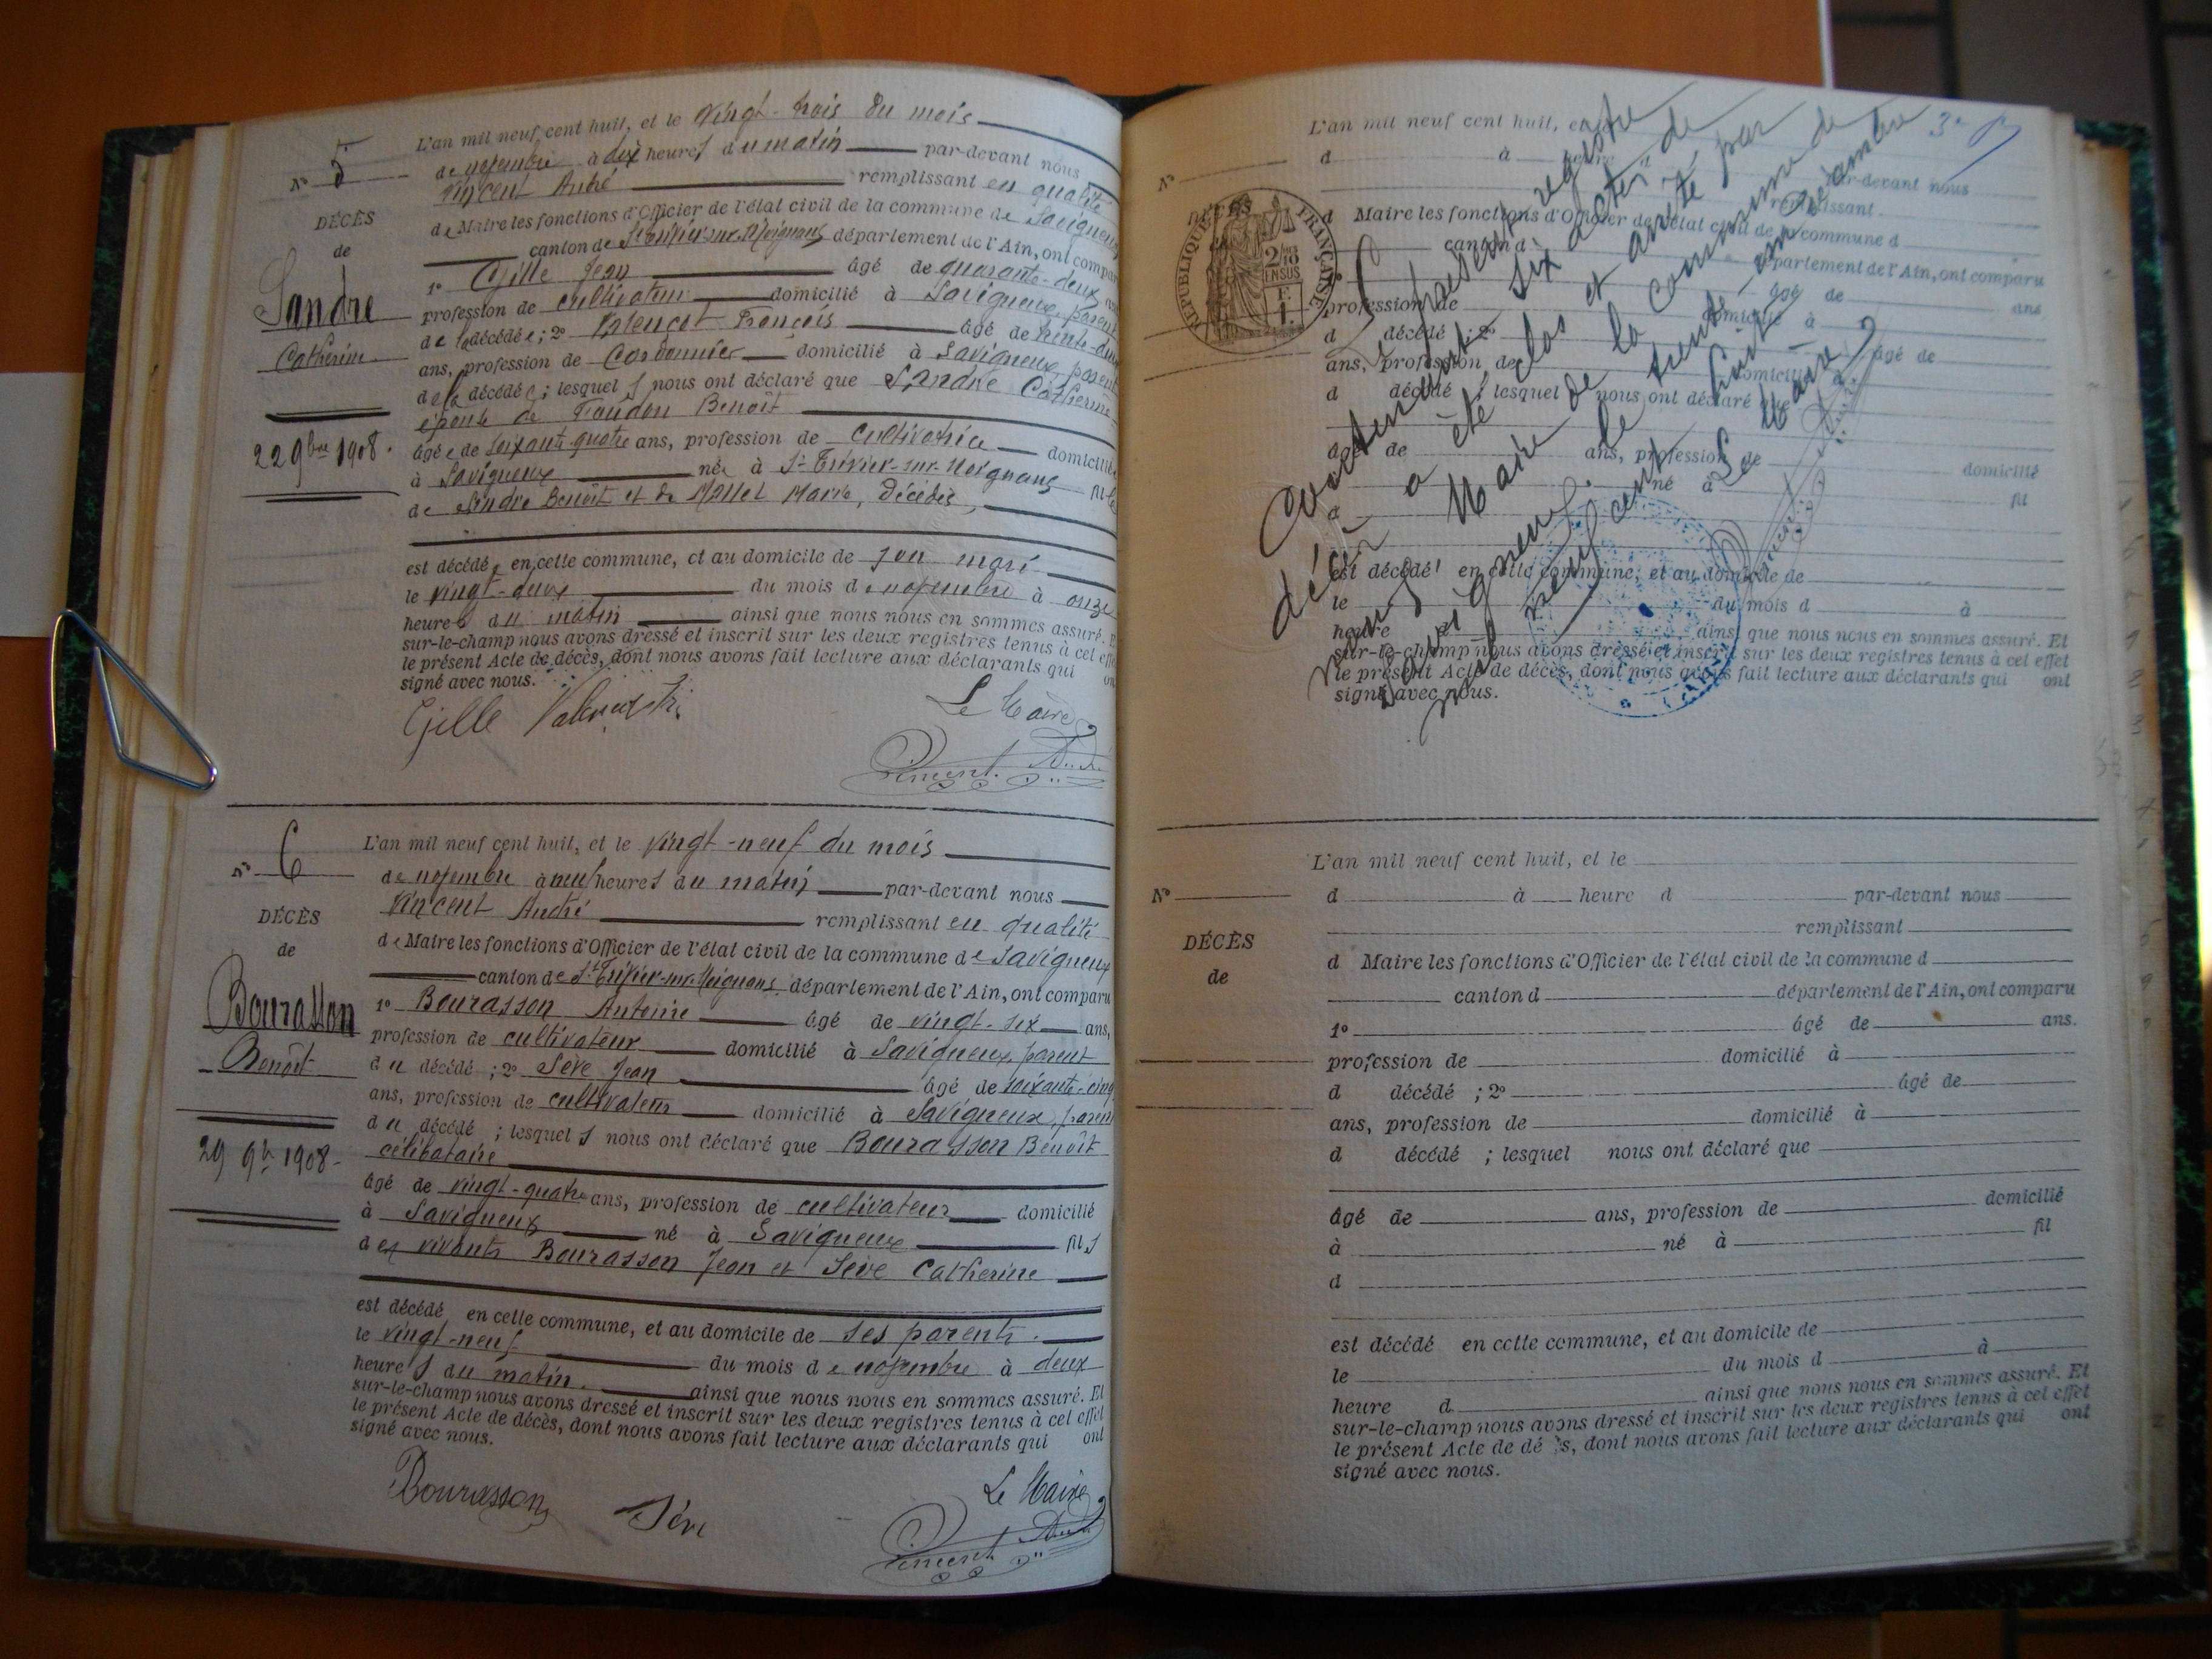 L'an mil neuf cent huit, et le vingt-trois du mois
N° 5
de novembre à dix heures du matin par-devant nous
Vincent André remplissant en qualité
DÉCÈS
de Maire les fonctions d'Officier de l'état civil de la commune de Savigneux
de
canton de St Trivier-sur-Moignans département de l'Ain, ont comparu
Sandre
Catherine
1° Gille Jean âgé de quarante-deux ans
profession de cultivateur domicilié à Savigneux, parent
de la décédée ; 2° François âgé de trente-deux
ans, profession de Cordonnier domicilié à Savigneux, parent
de la décédée ; lesquels nous ont déclaré que Sandre Catherine
épouse de Benoît
22 9bre 1908.
âgée de soixante-quatre ans, profession de cultivatrice domicilié
à Savigneux née à St Trivier-sur-Moignans fille
de Sandre Benoît et de Marie, décédés,
est décédée en cette commune, et au domicile de son mari
le vingt-deux du mois de novembre à onze
heures du matin ainsi que nous nous en sommes assuré. Et
sur-le-champ nous avons dressé et inscrit sur les deux registres tenus à cet effet
le présent Acte de décès, dont nous avons fait lecture aux déclarants qui ont
signé avec nous.
Gille
Le Maire
Vincent André
N° 6
L'an mil neuf cent huit, et le vingt-neuf du mois
de novembre à neuf heures du matin par-devant nous
Vincent André remplissant en qualité
DÉCÈS
de Maire les fonctions d'Officier de l'état civil de la commune de Savigneux
de
canton de St Trivier-sur-Moignans département de l'Ain, ont comparu
Bourasson
Benoît
1° Bourasson Antoine âgé de vingt-six ans,
profession de cultivateur domicilié à Savigneux, parent
du décédé ; 2° Sève Jean âgé de soixante-cinq
ans, profession de cultivateur domicilié à Savigneux, parent
du décédé ; lesquels nous ont déclaré que Bourasson Benoît
célibataire
29 9bre 1908.
âgé de vingt-quatre ans, profession de cultivateur domicilié
à Savigneux né à Savigneux fils
des vivants Bourasson Jean et Sève Catherine
est décédé en cette commune, et au domicile de ses parents.
le vingt-neuf du mois de novembre à deux
heures du matin. ainsi que nous nous en sommes assuré. Et
sur-le-champ nous avons dressé et inscrit sur les deux registres tenus à cet effet
le présent Acte de décès, dont nous avons fait lecture aux déclarants qui ont
signé avec nous.
Bourasson Sève
Le Maire
Vincent André
3e
L'an mil neuf cent huit, et le
N°
d à heure d par-devant nous
remplissant
DÉCÈS
d Maire les fonctions d'Officier de l'état civil de la commune d
canton d département de l'Ain, ont comparu
RÉPUBLIQUE FRANÇAISE
2/10 EN SUS
âgé de ans
profession de domicilié à
d décédé ; 2° âgé de
ans, profession de domicilié à
d décédé ; lesquel nous ont déclaré que
âgé de ans, profession de domicilié
à né à fil
d
est décédé en cette commune, et au domicile de
le du mois d à
heure d ainsi que nous nous en sommes assuré. Et
sur-le-champ nous avons dressé et inscrit sur les deux registres tenus à cet effet
le présent Acte de décès, dont nous avons fait lecture aux déclarants qui ont
signé avec nous.
Le présent registre
contenant six actes de
décès a été clos et arrêté par
nous Maire de la commune de
Savigneux le trente un Décembre
neuf cent huit
Le Maire
L'an mil neuf cent huit, et le
N° d à heure d par-devant nous
remplissant
DÉCÈS
d Maire les fonctions d'Officier de l'état civil de la commune d
de
canton d département de l'Ain, ont comparu
1° âgé de ans.
profession de domicilié à
d décédé ; 2° âgé de
ans, profession de domicilié à
d décédé ; lesquel nous ont déclaré que
âgé de ans, profession de domicilié
à né à fil
d
est décédé en cette commune, et au domicile de
le du mois d à
heure d ainsi que nous nous en sommes assuré. Et
sur-le-champ nous avons dressé et inscrit sur les deux registres tenus à cet effet
le présent Acte de décès, dont nous avons fait lecture aux déclarants qui ont
signé avec nous.